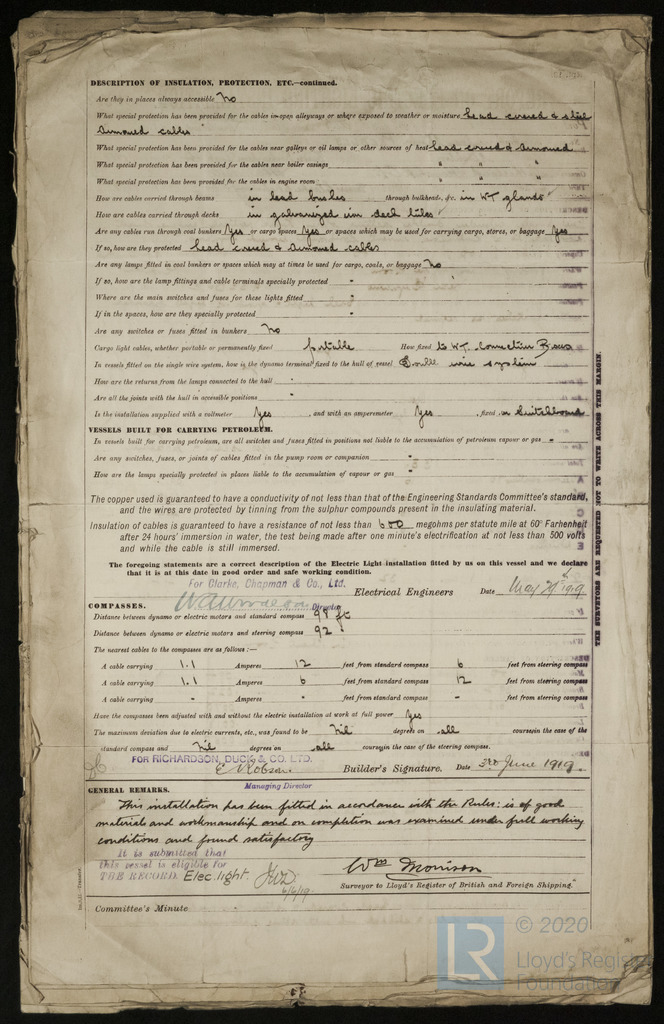 DESCRIPTION OF INSULATION, PROTECTION, ETC.—continued.
Are they in places always accessible No
What special protection has been provided for the cables in open alleyways or where exposed to weather or moisture lead covered & steel
armoured cables
What special protection has been provided for the cables near galleys or oil lamps or other sources of heat lead covered & armoured
What special protection has been provided for the cables near boiler casings " " "
What special protection has been provided for the cables in engine room " " "
How are cables carried through beams in lead bushes through bulkheads, &c. in WT glands
How are cables carried through decks in galvanized iron deck tubes
Are any cables run through coal bunkers Yes or cargo spaces Yes or spaces which may be used for carrying cargo, stores, or baggage Yes
If so, how are they protected lead covered & armoured cables
Are any lamps fitted in coal bunkers or spaces which may at times be used for cargo, coals, or baggage No
If so, how are the lamp fittings and cable terminals specially protected -
Where are the main switches and fuses for these lights fitted -
If in the spaces, how are they specially protected -
Are any switches or fuses fitted in bunkers No
Cargo light cables, whether portable or permanently fixed portable How fixed to W.T. Connection Boxes
In vessels fitted on the single wire system, how is the dynamo terminal fixed to the hull of vessel Double wire system
How are the returns from the lamps connected to the hull -
Are all the joints with the hull in accessible positions -
Is the installation supplied with a voltmeter Yes, and with an amperemeter Yes, fixed on Switchboard
VESSELS BUILT FOR CARRYING PETROLEUM.
In vessels built for carrying petroleum, are all switches and fuses fitted in positions not liable to the accumulation of petroleum vapour or gas -
Are any switches, fuses, or joints of cables fitted in the pump room or companion -
How are the lamps specially protected in places liable to the accumulation of vapour or gas -
The copper used is guaranteed to have a conductivity of not less than that of the Engineering Standards Committee's standard,
and the wires are protected by tinning from the sulphur compounds present in the insulating material.
Insulation of cables is guaranteed to have a resistance of not less than 600 megohms per statute mile at 60° Farhenheit
after 24 hours' immersion in water, the test being made after one minute's electrification at not less than 500 volts
and while the cable is still immersed.
The foregoing statements are a correct description of the Electric Light installation fitted by us on this vessel and we declare
that it is at this date in good order and safe working condition.
For Clarke, Chapman & Co., Ltd.
Director Electrical Engineers Date May 1919
COMPASSES.
Distance between dynamo or electric motors and standard compass 98 ft
Distance between dynamo or electric motors and steering compass 92 "
The nearest cables to the compasses are as follows:—
A cable carrying 1.1 Amperes 12 feet from standard compass 6 feet from steering compass
A cable carrying 1.1 Amperes 6 feet from standard compass 12 feet from steering compass
A cable carrying - Amperes - feet from standard compass - feet from steering compass
Have the compasses been adjusted with and without the electric installation at work at full power Yes
The maximum deviation due to electric currents, etc., was found to be Nil degrees on all courses in the case of the
standard compass and Nil degrees on all courses in the case of the steering compass.
FOR RICHARDSON, DUCK & CO. LTD.
E. Robson. Builder's Signature. Date 3rd June 1919.
Managing Director
GENERAL REMARKS.
This installation has been fitted in accordance with the Rules: is of good
materials and workmanship and on completion was examined under full working
conditions and found satisfactory
It is submitted that
this vessel is eligible for
THE RECORD. Elec light. 6/6/19
Wm Morrison
Surveyor to Lloyd's Register of British and Foreign Shipping.
Committee's Minute
THE SURVEYORS ARE REQUESTED NOT TO WRITE ACROSS THIS MARGIN.
LR
© 2020
Lloyd's Register
Foundation